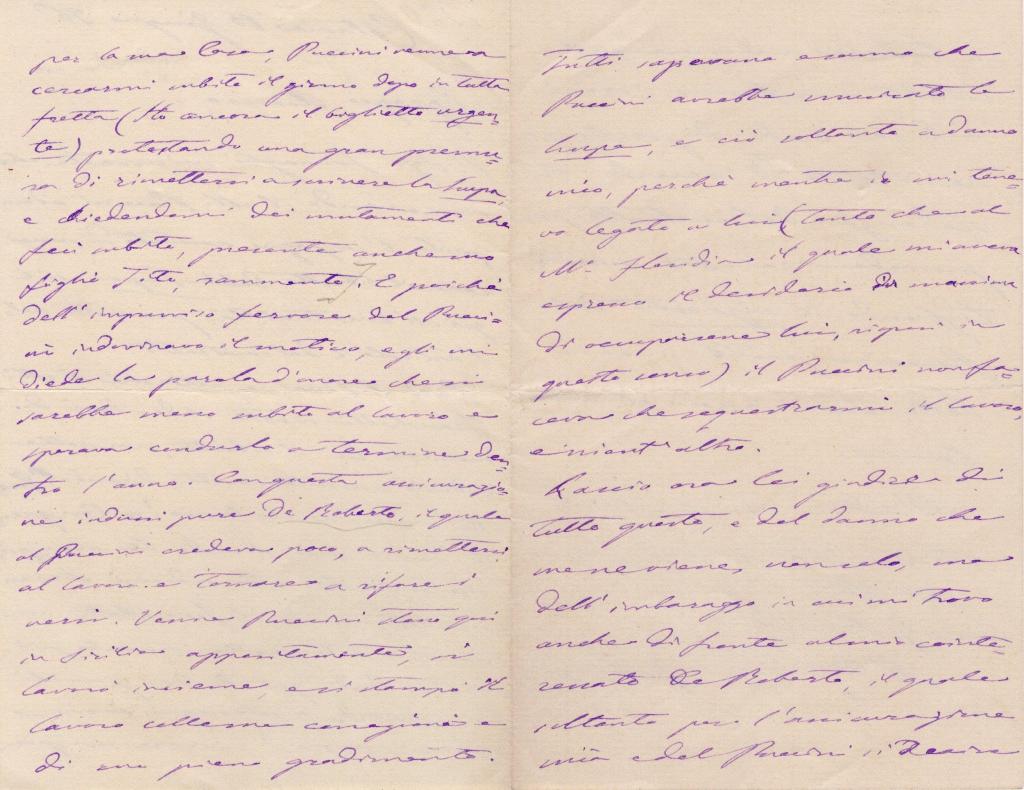 per la sua Casa, Puccini venne a
cercarmi subito il giorno dopo in tutta
fretta (Ho ancora il biglietto urgen=
te) protestando una gran premu=
ra di rimettersi a scrivere la Lupa,
e chiedendomi dei mutamenti che
feci subito, presente anche suo
figlio Tito, rammento). E poiché
dell'improvviso fervore del Pucci=
ni indovinavo il motivo, egli mi
diede la parola d'onore che si
sarebbe messo subito al lavoro e
sperava condurlo a termine den=
tro l'anno. Con questa assicurazio=
ne indussi pure De Roberto, il quale
al Puccini credeva poco, a rimettersi
al lavoro e tornare a rifare i
versi. Venne Puccini stesso qui
in Sicilia appositamente, si
lavorò insieme, e si stampò il
lavoro colle sue correzioni e
di suo pieno gradimento.
Tutti sapevano e sanno che
Puccini avrebbe musicato la
Lupa, e ciò soltanto a danno
mio, perchè mentre io mi tene=
vo legato a lui (tanto che al
Mo Floridia il quale mi aveva
espresso il desiderio di massima
di occuparsene lui, risposi in
questo senso) il Puccini non fa=
ceva che sequestrarmi il lavoro,
e nient'altro.
Lascio ora Lei giudice di
tutto questo, e del danno che
me ne viene, non solo, ma
dell'imbarazzo in cui mi trovo
anche di fronte al mio cointe=
ressato De Roberto, il quale
soltanto per l'assicurazione
mia e del Puccini si decise